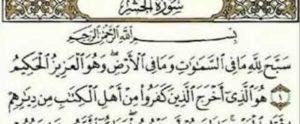 سُورَةُ الْحَشْرِ
بِسْمِ اللَّهِ الرَّحْمَٰنِ الرَّحِيمِ
سَبَّحَ لِلَّهِ مَا فِي السَّمَاوَاتِ وَمَا فِي الْأَرْضِ ۖ وَهُوَ الْعَزِيزُ الْحَكِيمُ
١ هُوَ الَّذِي أَخْرَجَ الَّذِينَ كَفَرُوا مِنْ أَهْلِ الْكِتَابِ مِن دِيَارِهِمْ